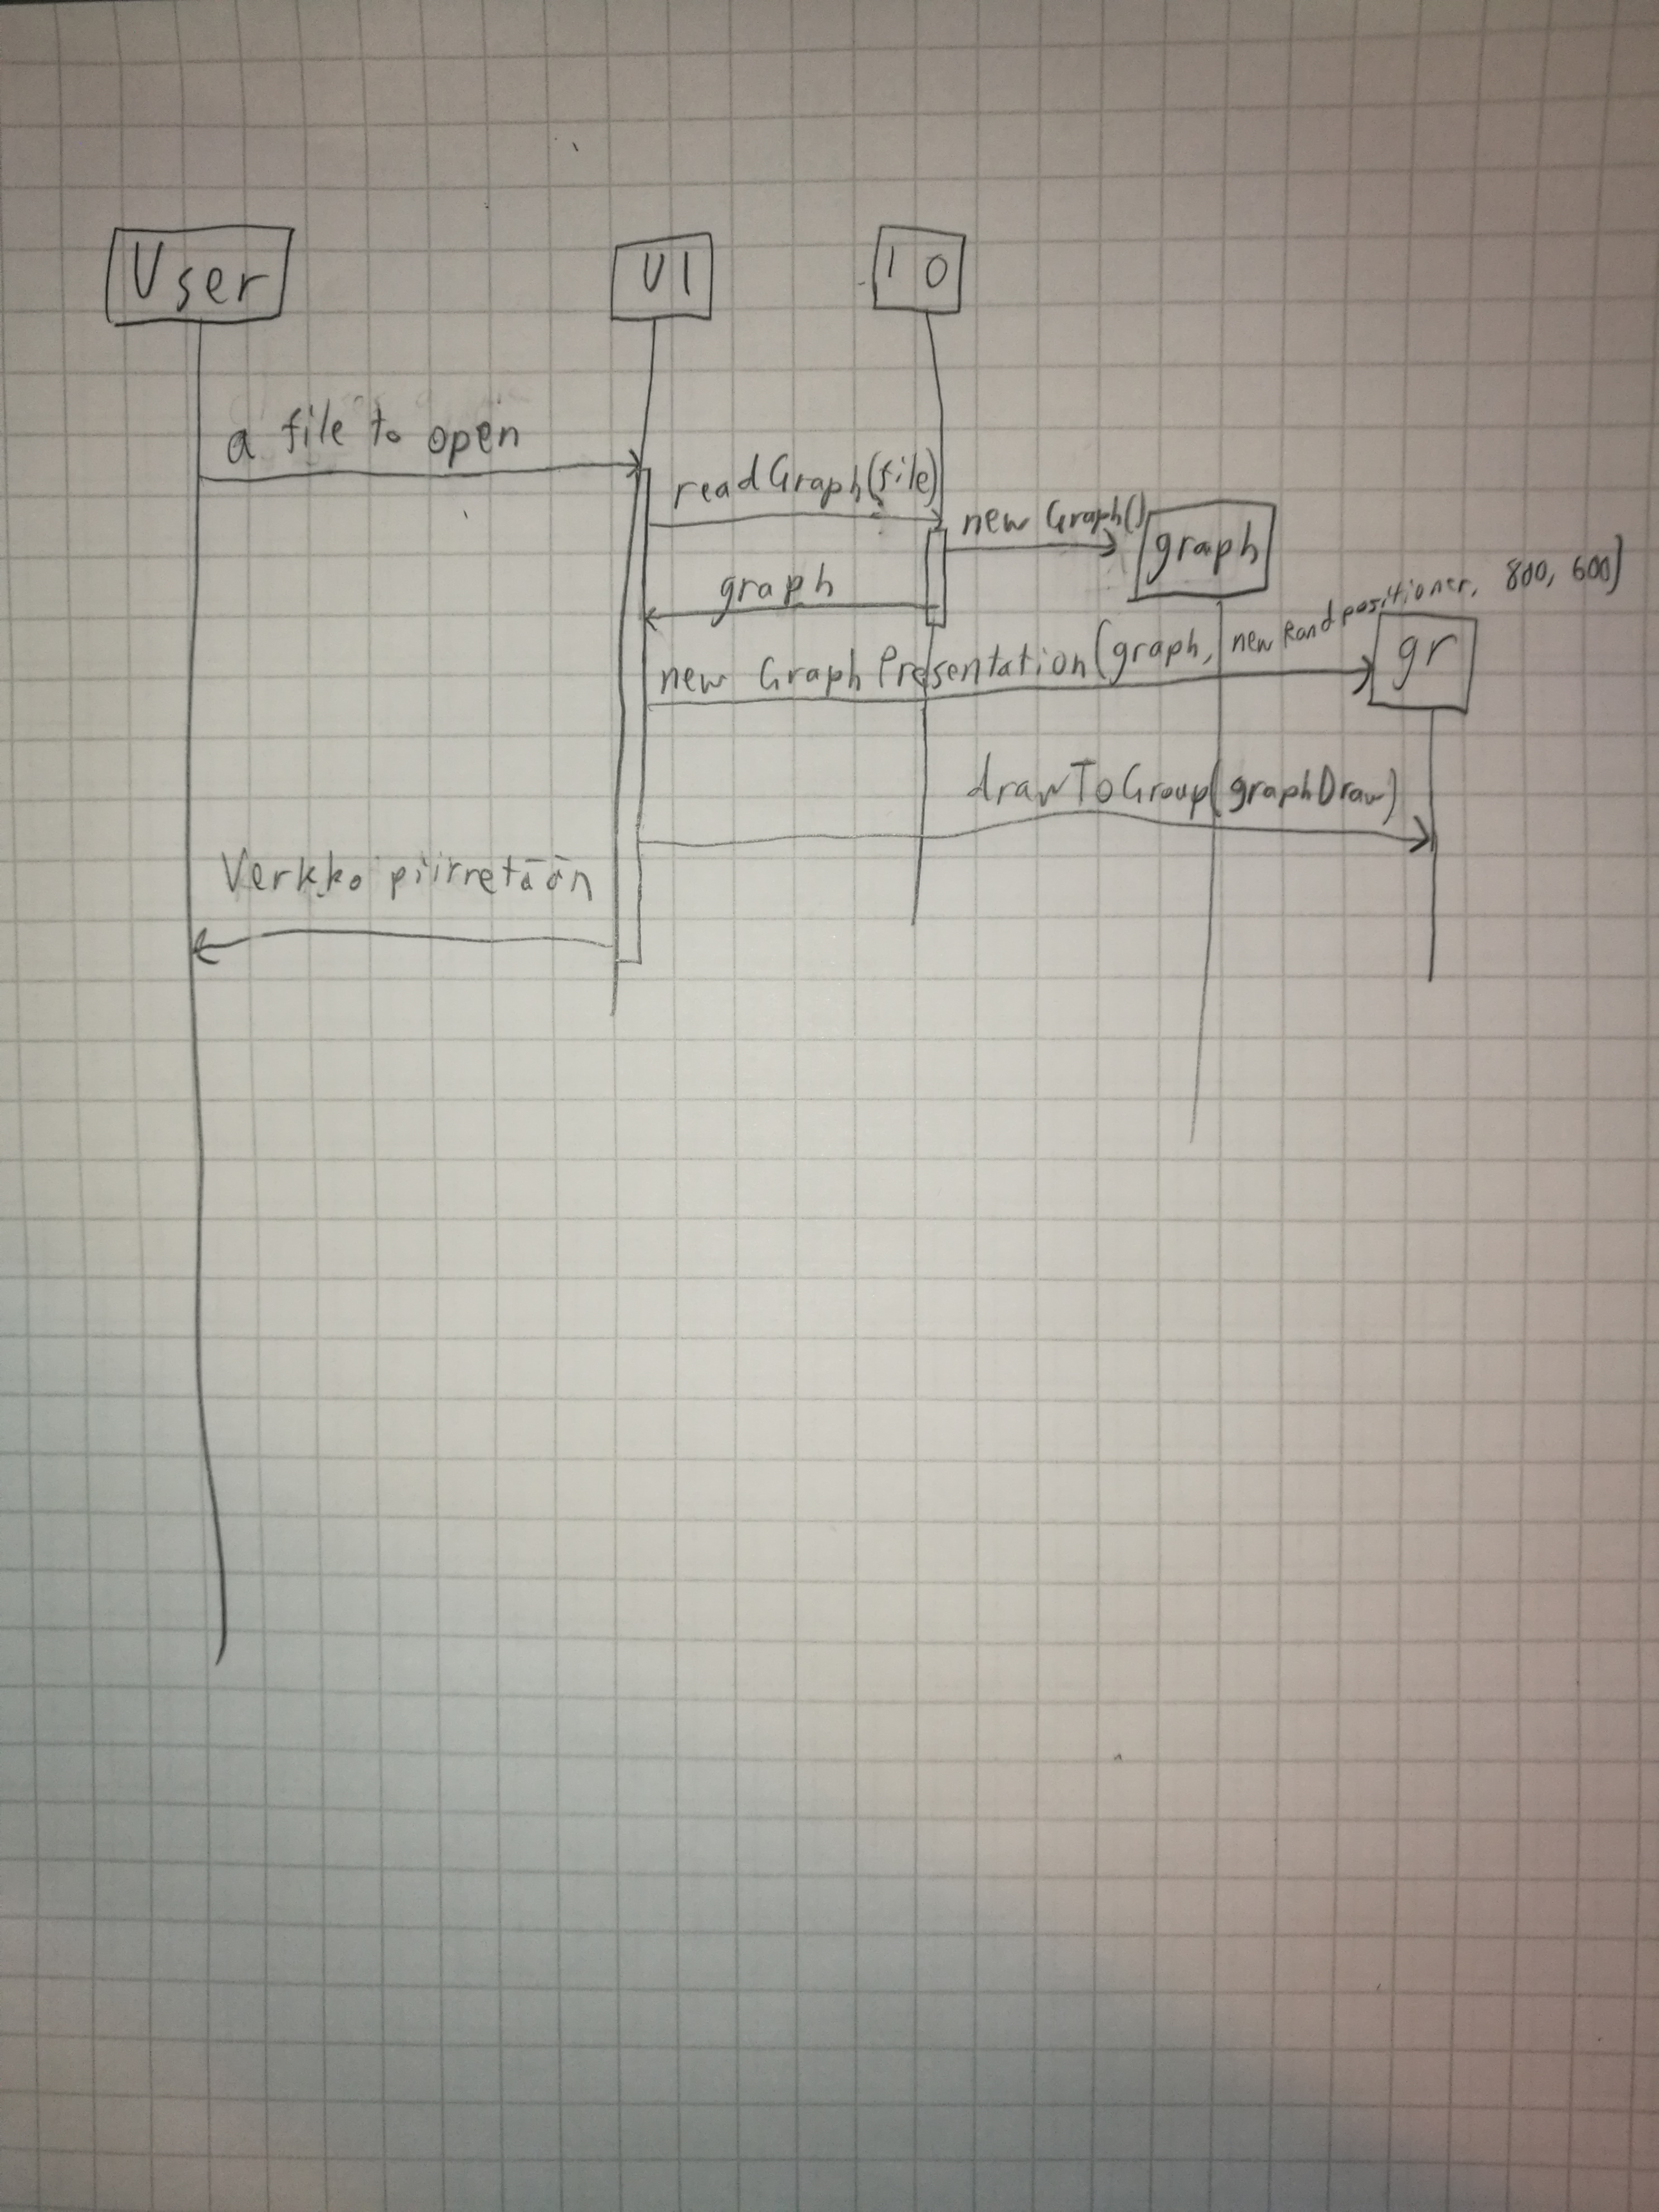 User
UI
IO
a file to open
readGraph(file)
new Graph()
graph
graph
new GraphPresentation(graph, new Randpositioner, 800, 600)
gr
drawToGroup(graphDraw)
Verkko piirretään